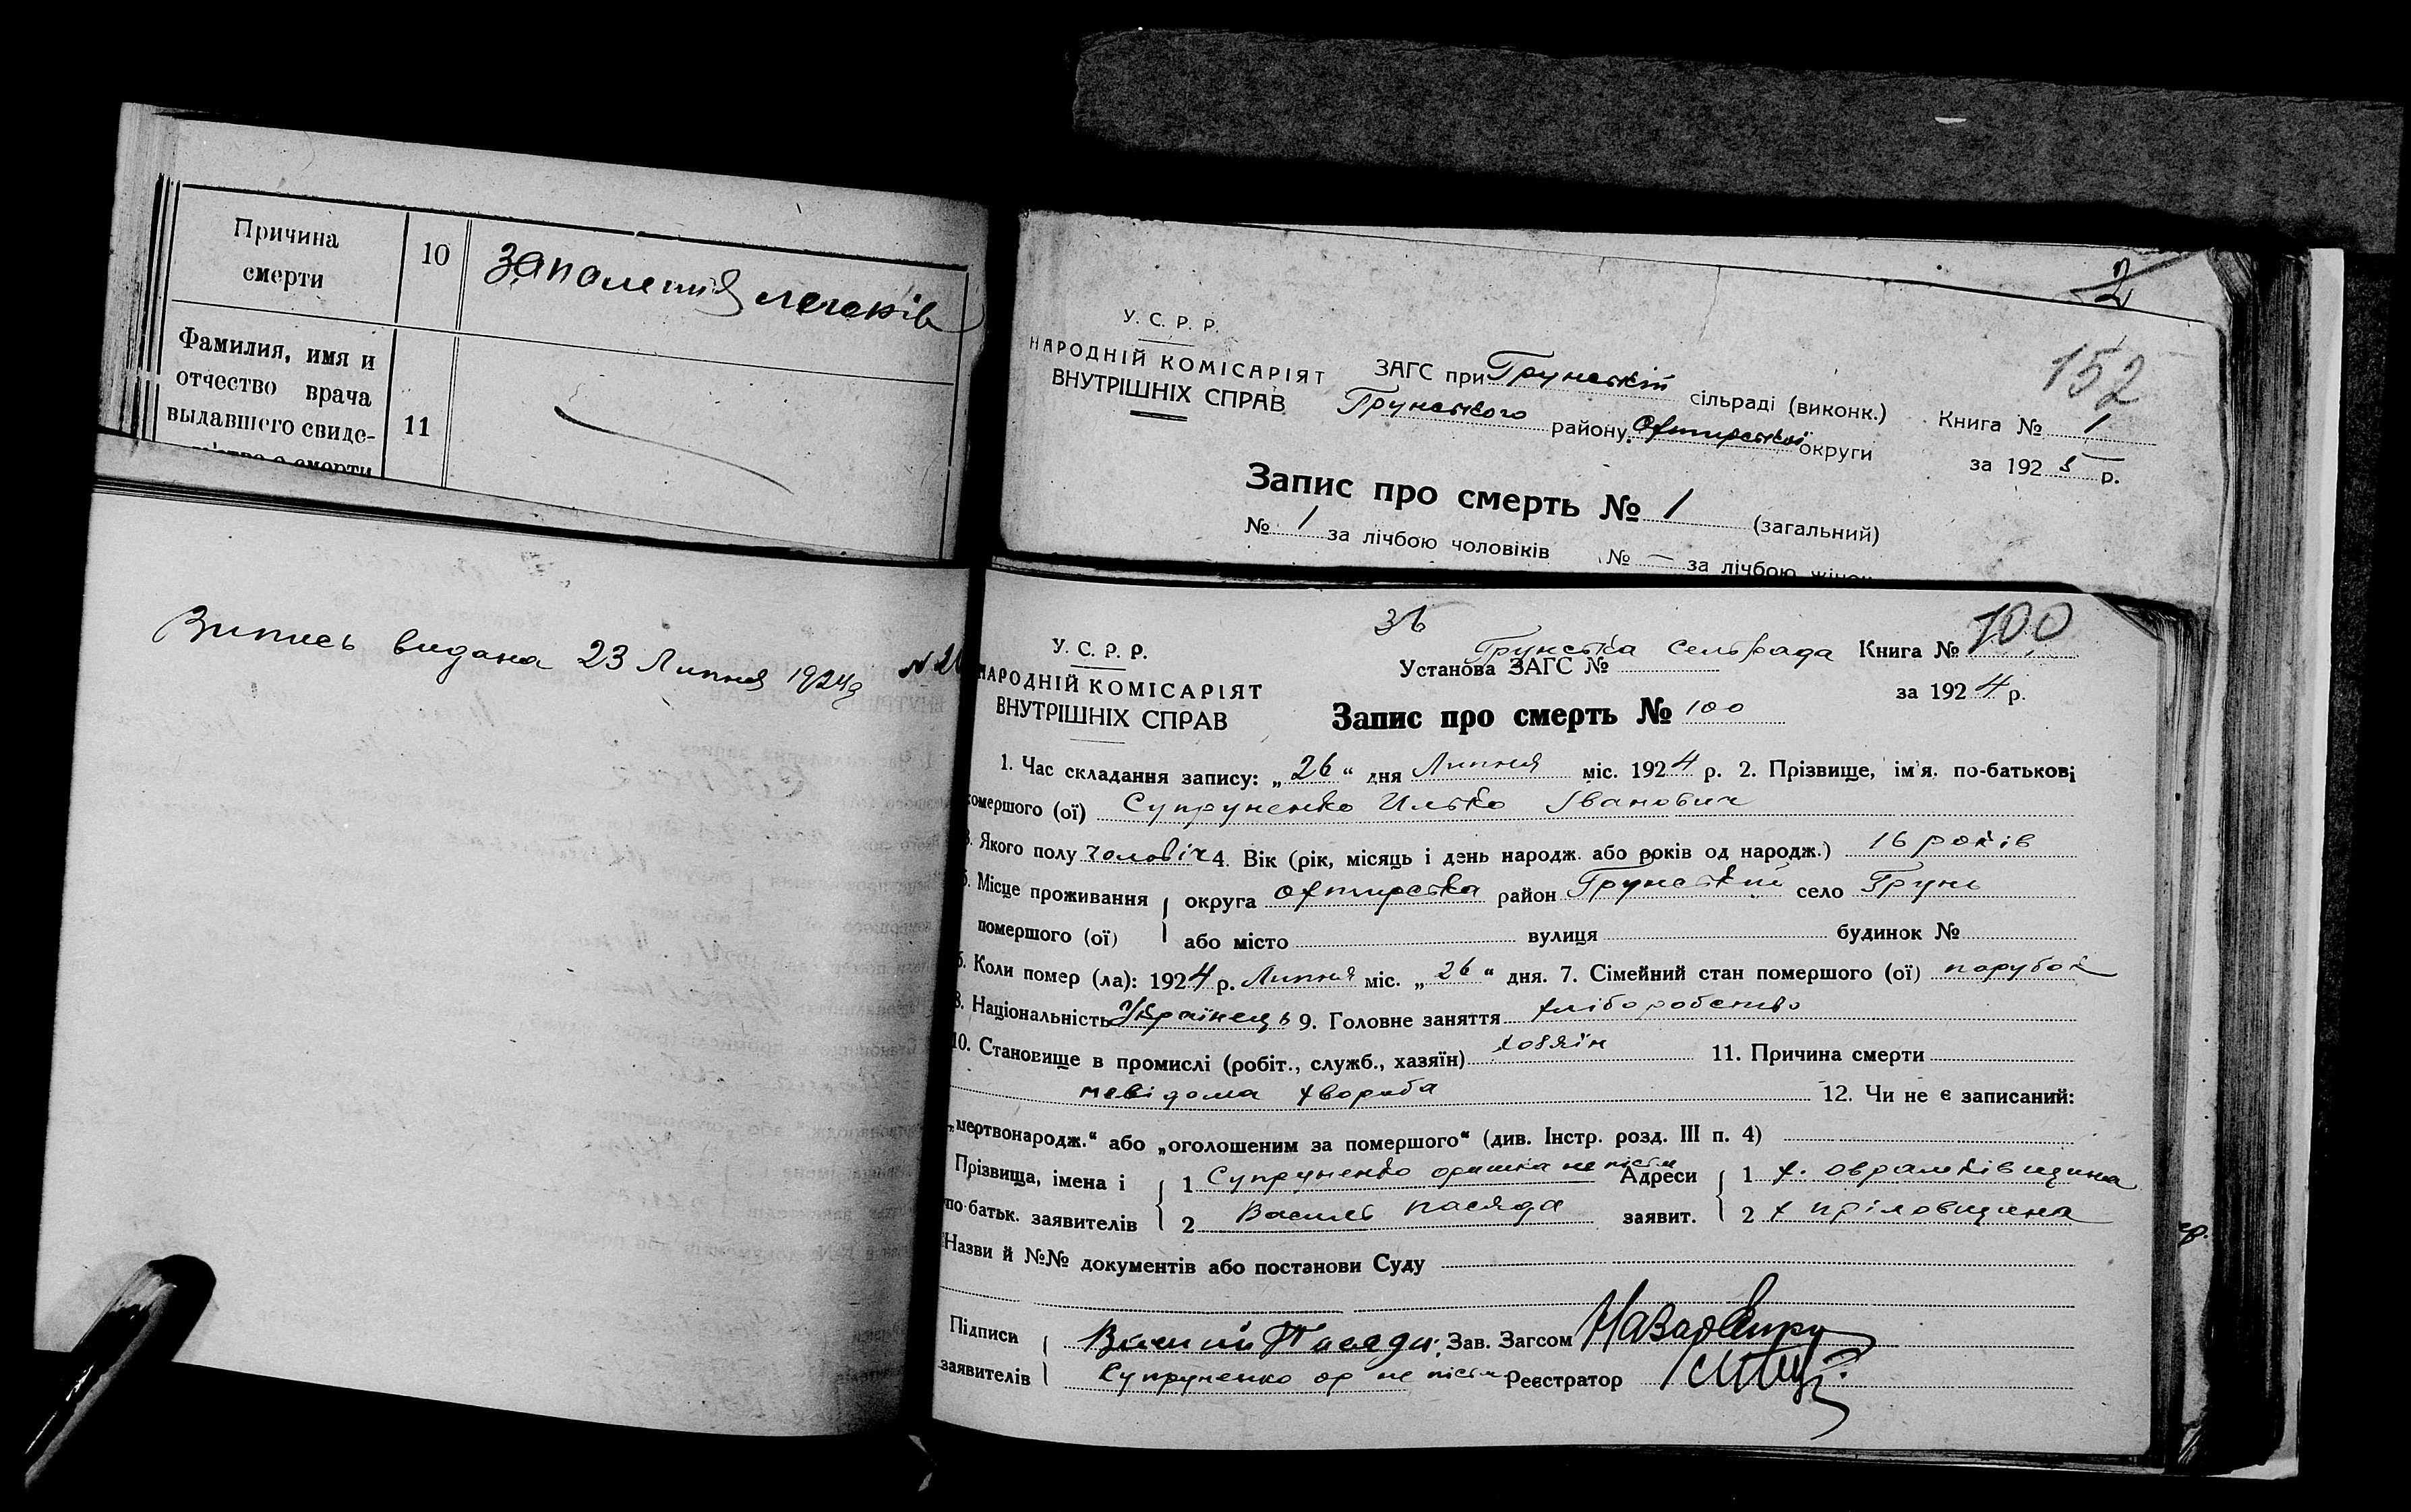 Причина
смерти
10
Запаленія легенів
Фамилия, имя и
отчество врача
выдавшего свиде-
11
смерти
Випись видана 23 Липня 1924 р
2
152
У. С. Р. Р.
НАРОДНІЙ КОМІСАРІЯТ
ВНУТРІШНІХ СПРАВ
ЗАГС при Грунській сільраді (виконк.)
Грунського району Охтирської округи
Книга № 1
за 1925 р.
Запис про смерть № 1 (загальний)
№ 1 за лічбою чоловіків № — за лічбою жінок
У. С. Р. Р.
НАРОДНІЙ КОМІСАРІЯТ
ВНУТРІШНІХ СПРАВ
Грунська сельрада
Установа ЗАГС №
Книга № 100
за 1924 р.
Запис про смерть № 100
1. Час складання запису: „26“ дня Липня міс. 1924 р. 2. Прізвище, ім'я, по-батькові
помершого (ої) Супруненко Илько Іванович
3. Якого полу чоловіч 4. Вік (рік, місяць і день народж. або років од народж.) 16 років
5. Місце проживання округа охтирська район Грунський село Грунь
помершого (ої) або місто вулиця будинок №
6. Коли помер (ла): 1924 р. Липня міс. „26“ дня. 7. Сімейний стан помершого (ої) парубок
8. Національність Українець 9. Головне заняття хліборобство
10. Становище в промислі (робіт., служб., хазяїн) хозяін 11. Причина смерти
невідома хвороба 12. Чи не є записаний:
„мертвонародж.“ або „оголошеним за помершого“ (див. Інстр. розд. III п. 4)
Прізвища, імена і 1 Супруненко оришка не пісьм Адреси 1 х.
по батьк. заявителів 2 Василь Пасяда заявит. 2 х
Назви й №№ документів або постанови Суду
Підписи Пасяда Зав. Загсом
заявителів Супруненко ор не пісьм Реєстратор